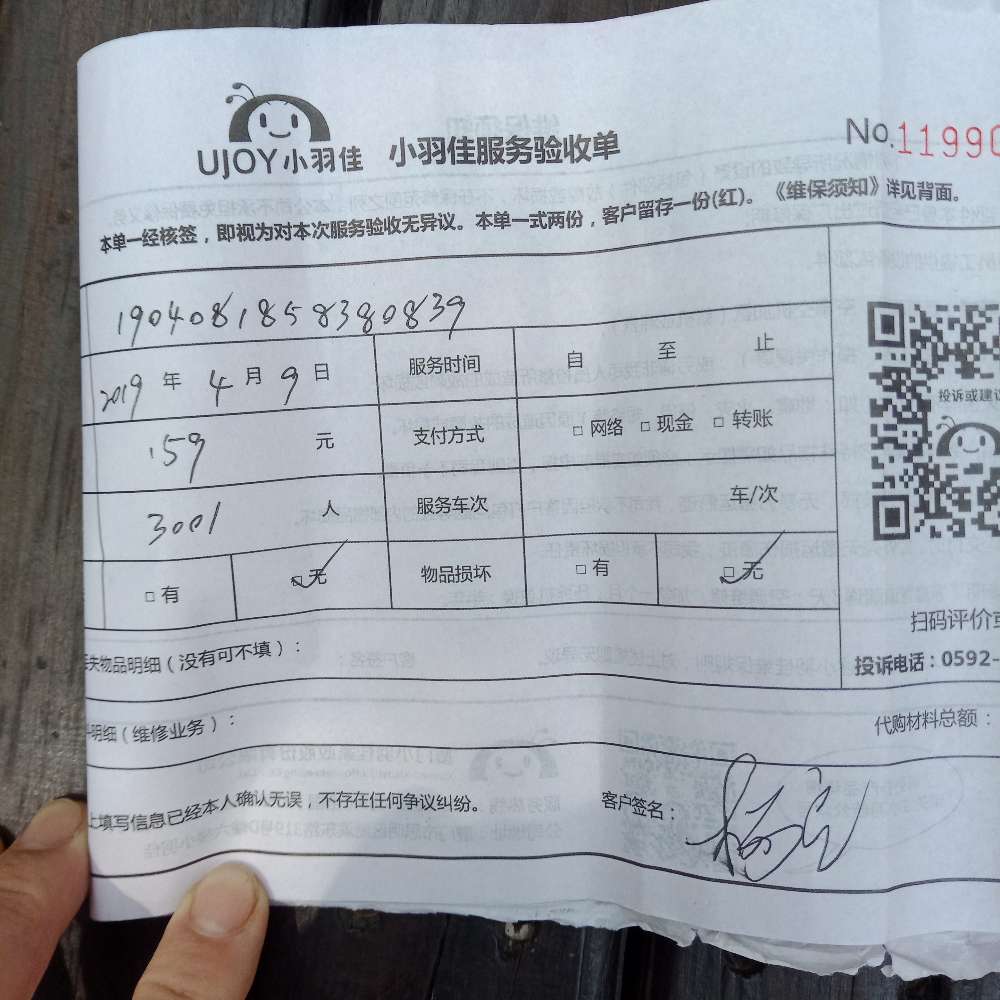 UJOY小羽佳 小羽佳服务验收单 No.11990
本单一经核签，即视为对本次服务验收无异议。本单一式两份，客户留存一份(红)。《维保须知》详见背面。
1904081858380839
2019年4月9日 服务时间 自 至 止
159 元 支付方式 □网络 □现金 □转账
3001 人 服务车次 车/次
□有 □无 物品损坏 □有 □无
投诉或建议
扫码评价或
失物品明细（没有可不填）：
投诉电话：0592-
明细（维修业务）： 代购材料总额：
上填写信息已经本人确认无误，不存在任何争议纠纷。 客户签名：